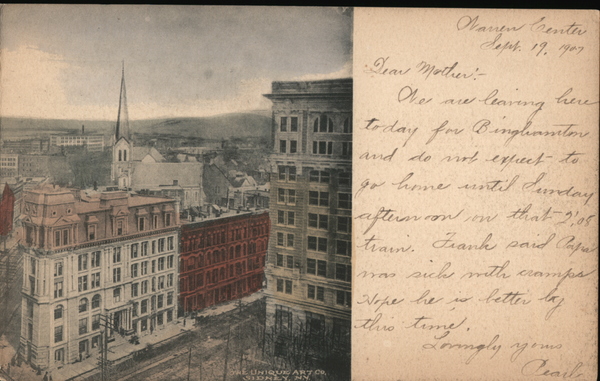 Warren Center
Sept. 19, 1907
Dear Mother:-
We are leaving here
today for Binghamton
and do not expect to
go home until Sunday
afternoon on that 2:08
train. Frank said Papa
was sick with cramps
Hope he is better by
this time.
Lovingly yours
Pearl
THE UNIQUE ART CO.
SIDNEY, N.Y.